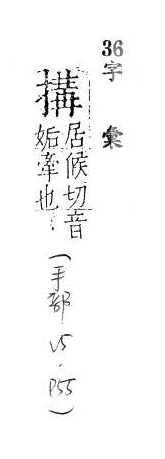 36字彙
搆
居候切音
姤牽也
(手部 V5. P55)